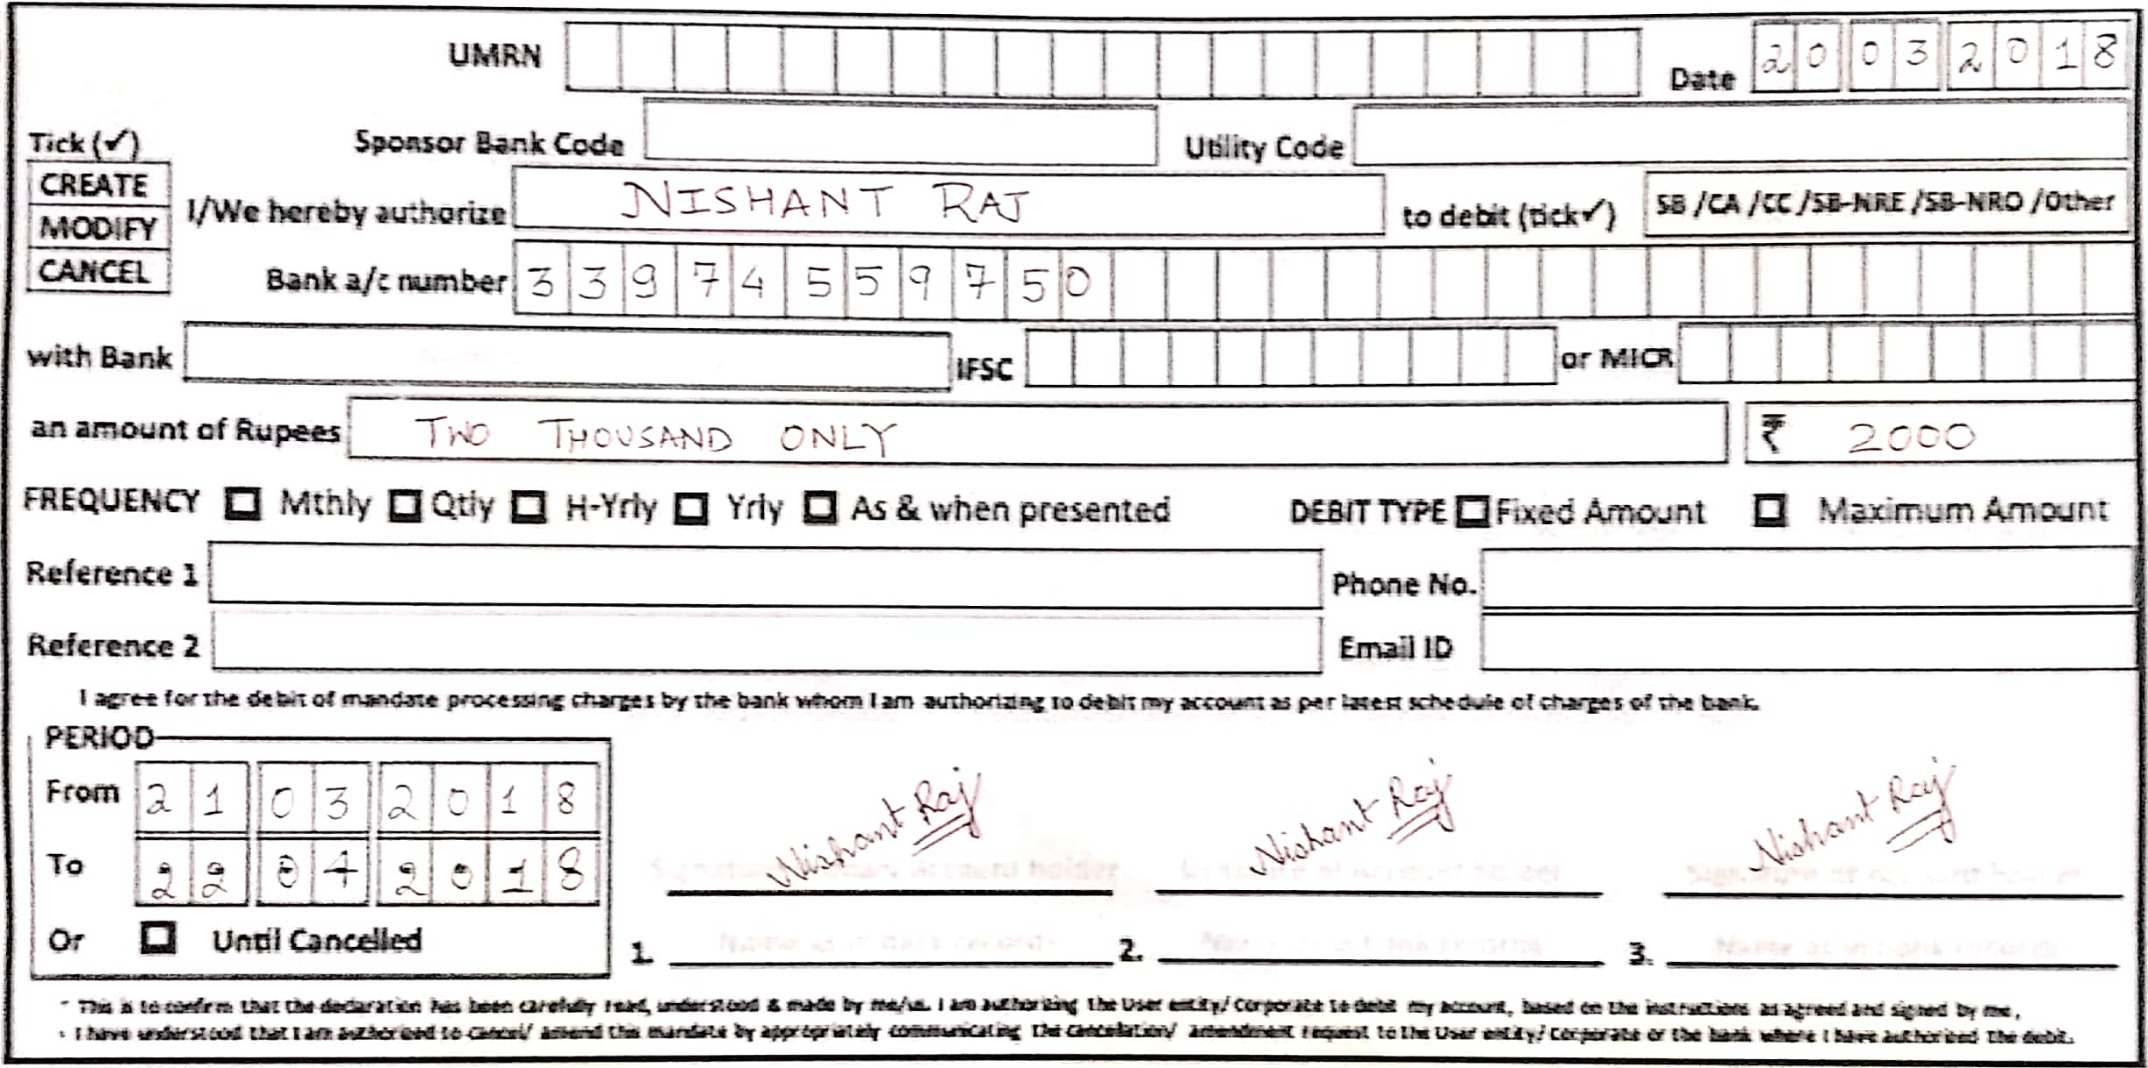 UMRN Date 20032018
Tick (✓) Sponsor Bank Code Utility Code
CREATE I/We hereby authorize NISHANT RAJ to debit (tick✓) SB /CA /CC /SB-NRE /SB-NRO /Other
MODIFY
CANCEL Bank a/c number 33974559750
with Bank IFSC or MICR
an amount of Rupees TWO THOUSAND ONLY ₹ 2000
FREQUENCY Mthly Qtly H-Yrly Yrly As & when presented DEBIT TYPE Fixed Amount Maximum Amount
Reference 1 Phone No.
Reference 2 Email ID
I agree for the debit of mandate processing charges by the bank whom I am authorizing to debit my account as per latest schedule of charges of the bank.
PERIOD
From 21032018
To 22042018 Nishant Raj Nishant Raj Nishant Raj
Or Until Cancelled 1. 2. 3.
- This is to confirm that the declaration has been carefully read, understood & made by me/us. I am authorizing the User entity/ Corporate to debit my account, based on the instructions as agreed and signed by me,
· I have understood that I am authorised to cancel/ amend this mandate by appropriately communicating the cancellation/ amendment request to the User entity/ Corporate or the bank where I have authorized the debit.